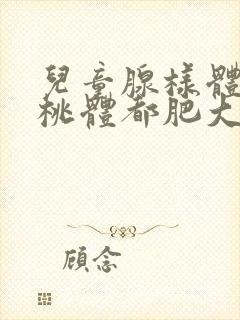 兒童腺樣體
桃體都肥大
顧念